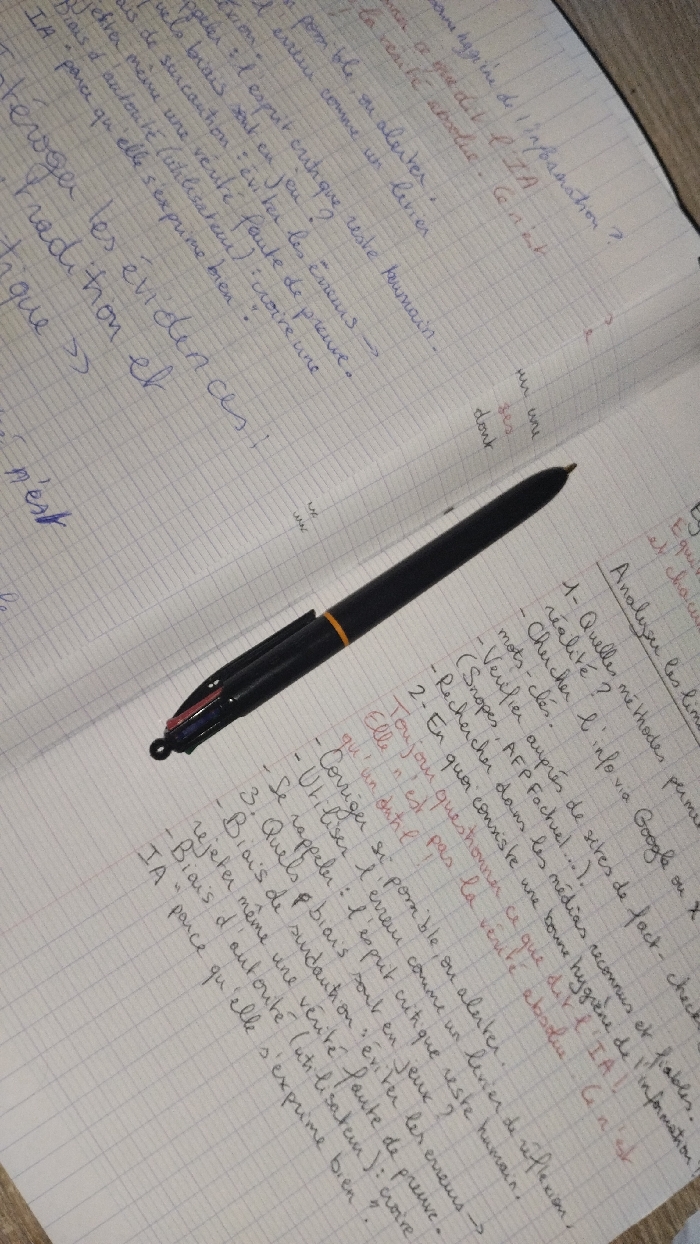 hygiène de l'information ?
ce que dit l'IA
la vérité absolue. Ce n'est
possible, ou alerter.
l'erreur comme un levier
: l'esprit critique reste humain.
quels biais sont en jeu ?
de surcaution : éviter les erreurs →
rejeter même une vérité faute de preuve.
Biais d'autorité (utilisateur) : croire une
IA parce qu'elle s'exprime bien ?
les évidences !
tradition et
>>
n'est
un une
ses
dont
Analyser les
1- Quelles méthodes
réalité ?
- Chercher l'info via Google ou X
mots-clés.
- Vérifier auprès de sites de fact-
(Snopes, AFP Factuel...).
- Rechercher dans les médias reconnus et fiables.
2- En quoi consiste une bonne hygiène de l'information
Toujours questionner ce que dit l'IA !
Elle n'est pas la vérité absolue. Ce n'est
qu'un outil !
- Corriger si possible, ou alerter.
- Utiliser l'erreur comme un levier de réflexion.
- Se rappeler : l'esprit critique reste humain.
3. Quels biais sont en jeux ?
- Biais de surcaution : éviter les erreurs →
rejeter même une vérité faute de preuve.
- Biais d'autorité (utilisateur) : croire
IA "parce qu'elle s'exprime bien ?